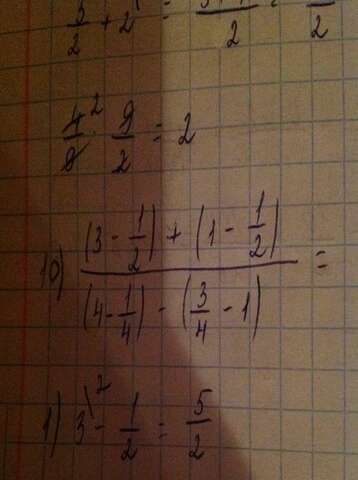 5/2 + 2 = /2 = /2
4/9 2 · 9/2 = 2
10) ((3 - 1/2) + (1 - 1/2)) / ((4 - 1/4) - (3/4 - 1)) =
1) 3\2 - 1/2 = 5/2